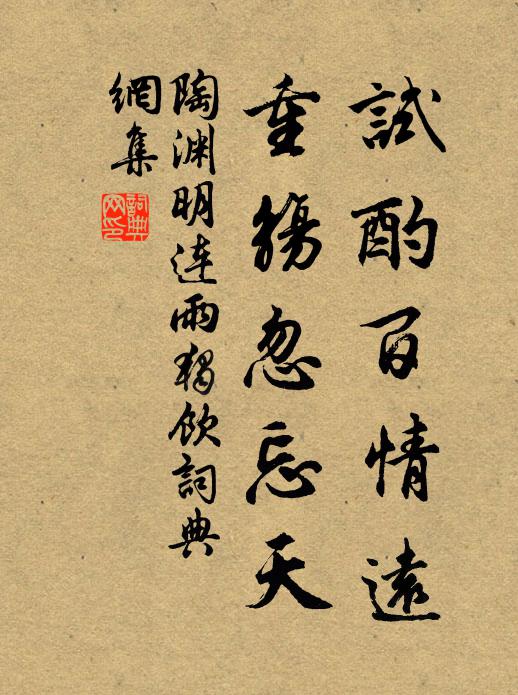 試酌百情遠
重觴忽忘天
陶渊明連雨獨飲詞典
網集
詞典
网印